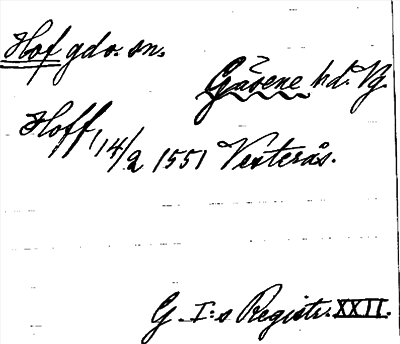 Hof gdo. sn.
Gäsene hd. Vg.
Hoff, 14/2 1551 Vesterås.
G. I:s Registr. XXII.